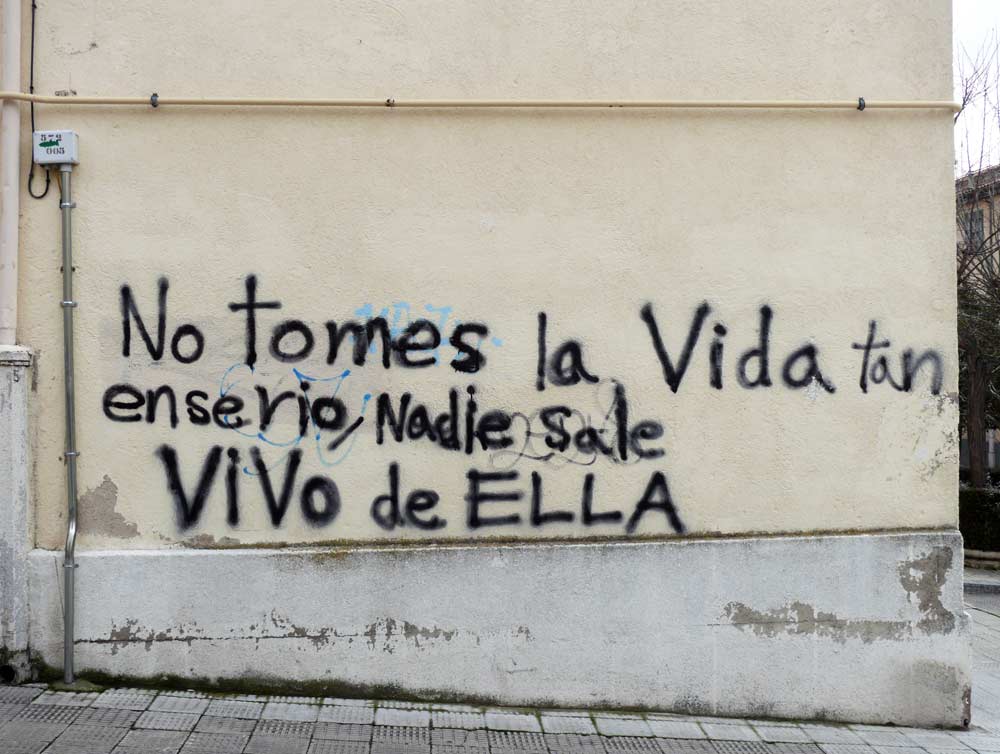 572
005
No tomes la Vida tan
enserio, Nadie sale
ViVo de ELLA